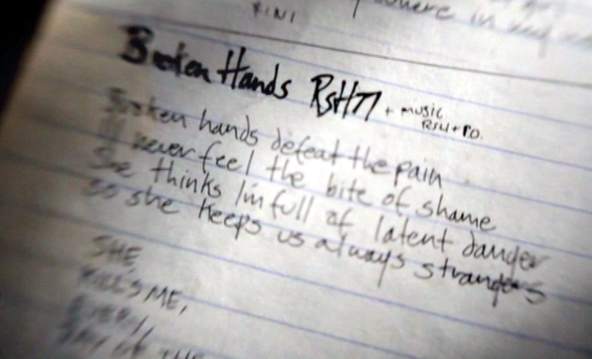 FINI
where in my
Broken Hands RSH77 + music RSH + PO.
Broken hands defeat the pain
I'll never feel the bite of shame
She thinks I'm full of latent danger
so she keeps us always strangers
SHE
KILLS ME,
EVERY
DAY OF THE